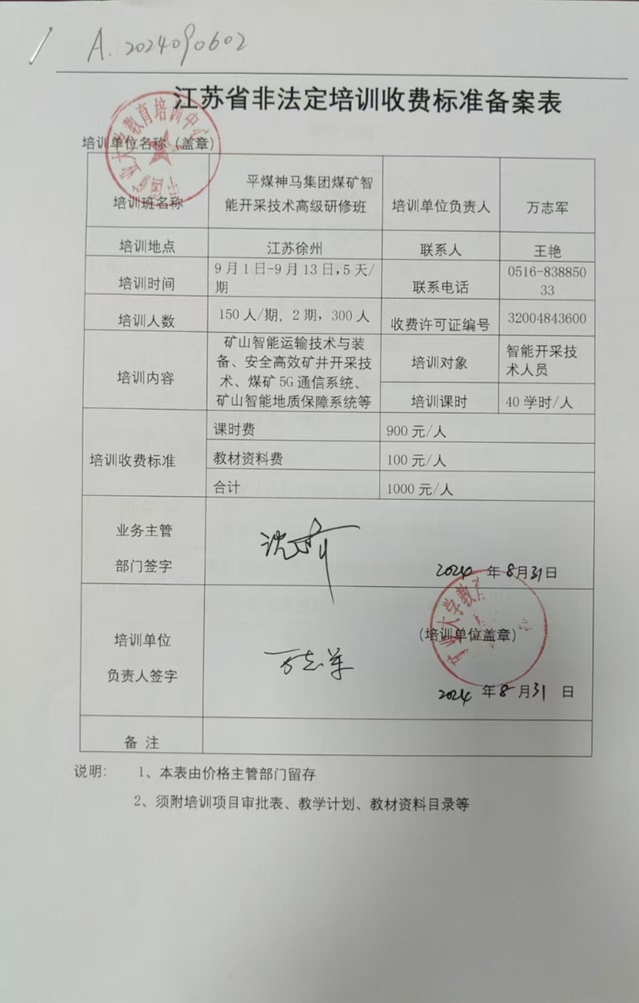 A. 2024090602
江苏省非法定培训收费标准备案表
培训单位名称（盖章）
培训班名称
平煤神马集团煤矿智
能开采技术高级研修班
培训单位负责人
万志军
培训地点
江苏徐州
联系人
王艳
培训时间
9月1日-9月13日,5天/
期
联系电话
0516-838850
33
培训人数
150人/期, 2期, 300人
收费许可证编号
32004843600
培训内容
矿山智能运输技术与装
备、安全高效矿井开采技
术、煤矿5G通信系统、
矿山智能地质保障系统等
培训对象
智能开采技
术人员
培训课时
40学时/人
培训收费标准
课时费
900元/人
教材资料费
100元/人
合计
1000元/人
业务主管
部门签字
2024 年 8月31日
培训单位
负责人签字
万志军
(培训单位盖章)
2024 年 8月 31 日
备 注
说明: 1、本表由价格主管部门留存
2、须附培训项目审批表、教学计划、教材资料目录等